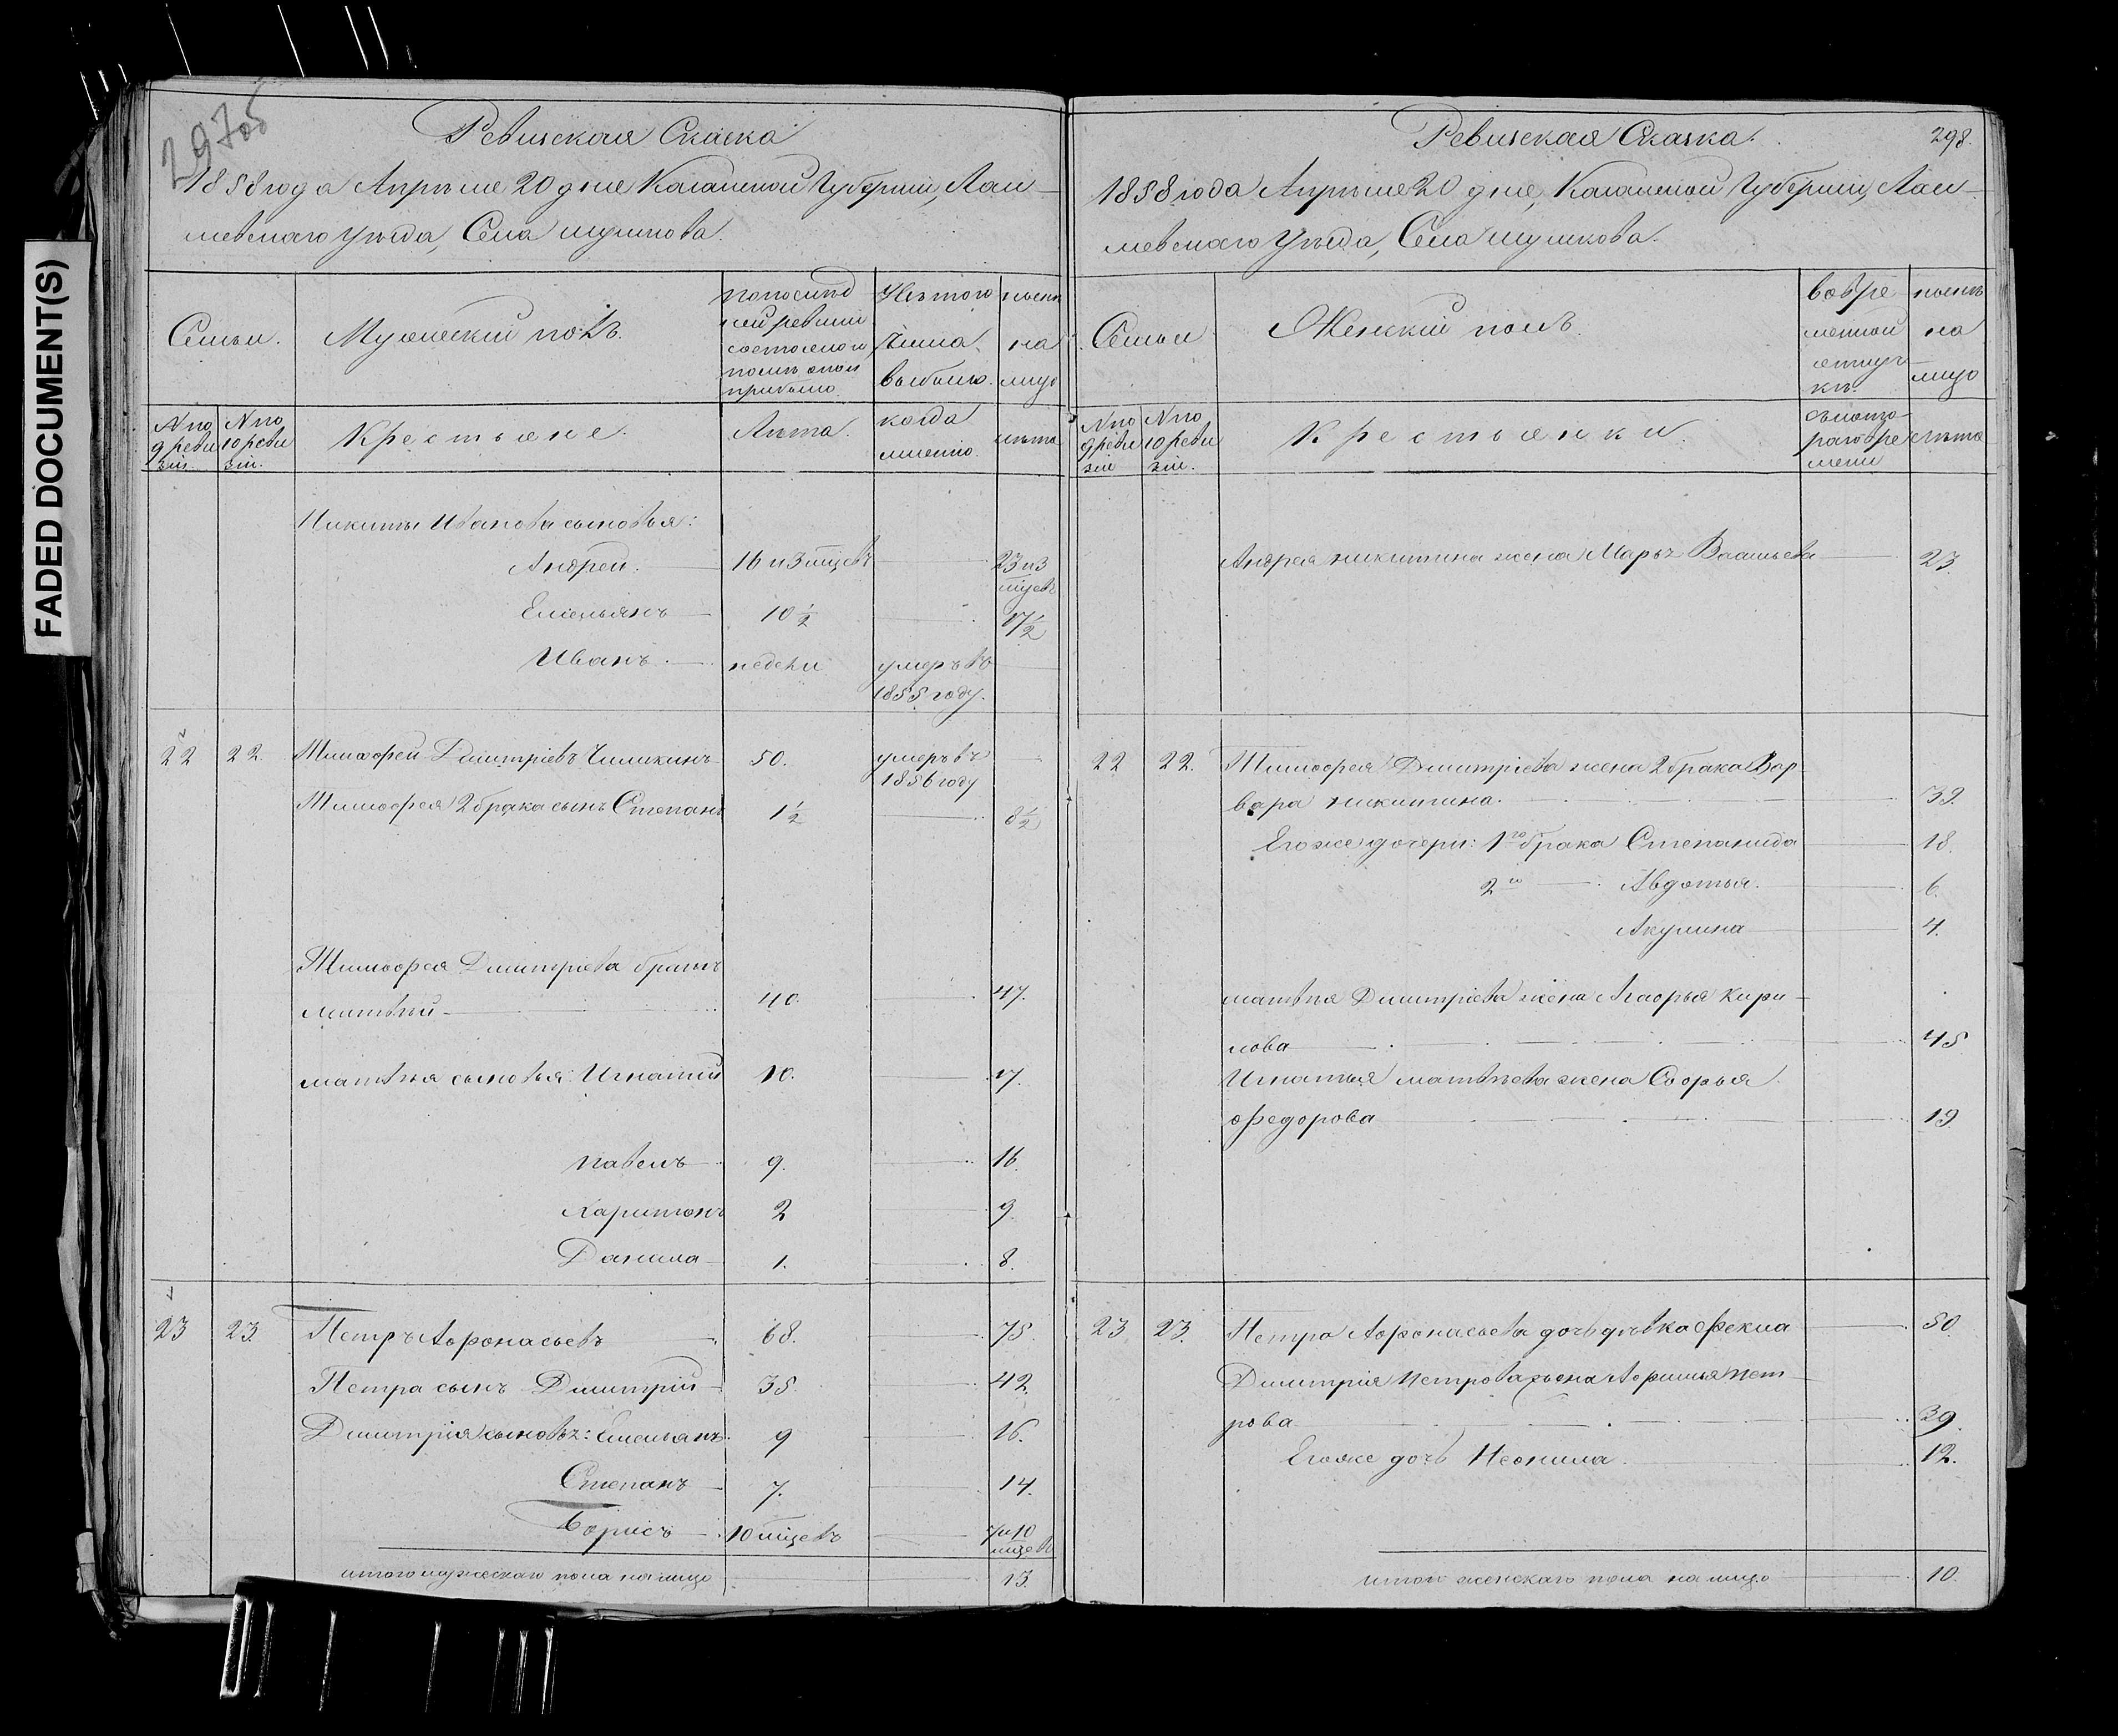 FADED DOCUMENT(S)
297об
Ревизская Сказка
1858 года Апреля 20 дня Казанской Губернии, Лаи-
шевскаго Уезда, Села Шушкова.
Семьи.
Мужеский полъ.
По послед
ней ревизии
состояло и
после оной
прибыло
Изъ того
числа
выбыло.
ныне
на
лицо
№ по
9 реви
зіи.
№ по
10 реви
зіи.
Крестьяне.
Лета.
когда
именно.
лета
Никиты Иванова сыновья:
Андрей. 16 и 3 мцевъ 23 и 3
мцевъ
Емельянъ 10 1/2 17 1/2
Иванъ. недели умеръ въ
1855 году.
22 22 Тимофей Димитріевъ Чишкинъ 50. умеръ въ
1856 году
Тимофея 2 брака сынъ Степанъ 1 1/2 8 1/2
Тимофея Димитріева братъ
Матвей 40. 47.
Матвея сыновья: Игнатій 10. 17.
Павелъ 9. 16.
Харитонъ 2 9
Данила 1. 8.
23 23 Петръ Афонасьевъ 68. 75.
Петра сынъ Димитрій 35. 42
Димитрія сыновья: Емельянъ 9 16.
Степанъ 7. 14.
Борисъ 10 мцевъ 7 и 10
мцевъ
итого мужескаго пола на лицо 13.
Ревизская Сказка. 298.
1858 года Апреля 20 дня, Казанской Губерніи, Лаи-
шевскаго Уезда, Села Шушкова.
Семьи
Женскій полъ.
во вре
менной
отлуч-
ке.
ныне
на
лицо
№ по
9 реви
зіи
№ по
10 реви
зіи.
Крестьянки.
съ кото-
раго вре
мени
лета
Андрея Никитина жена Марья Васильева 23
22 22. Тимофея Димитріева жена 2 брака Вар-
вара Никитина. 39.
Его же дочери: 1го брака Степанида 18.
2го Авдотья. 6.
Акулина 4.
Матвея Димитріева жена Агафья Кири-
лова 45
Игнатья Матвеева жена Софья
Федорова 19
23. 23. Петра Афонасьева дочь девка Фекла 50
Димитрія Петрова жена Афимья Пет-
рова 39.
Его же дочь Неонила. 12.
итого женскаго пола на лицо 10.